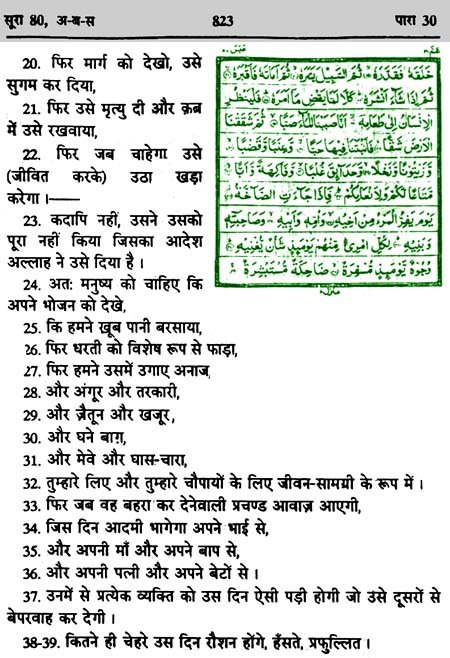 सूरा 80, अ-ब-स 823 पारा 30
20. फिर मार्ग को देखो, उसे
सुगम कर दिया,
21. फिर उसे मृत्यु दी और क़ब्र
में उसे रखवाया,
22. फिर जब चाहेगा उसे
(जीवित करके) उठा खड़ा
करेगा ।——
23. कदापि नहीं, उसने उसको
पूरा नहीं किया जिसका आदेश
अल्लाह ने उसे दिया है ।
24. अतः मनुष्य को चाहिए कि
अपने भोजन को देखे,
عَبَسَ ٨٠
عم ٣٠
خَلَقَهٗ فَقَدَّرَهٗ ثُمَّ السَّبِيْلَ يَسَّرَهٗ ثُمَّ اَمَاتَهٗ فَاَقْبَرَهٗ
ثُمَّ اِذَا شَآءَ اَنْشَرَهٗ كَلَّا لَمَّا يَقْضِ مَآ اَمَرَهٗ فَلْيَنْظُرِ
الْاِنْسَانُ اِلٰى طَعَامِهٖ اَنَّا صَبَبْنَا الْمَآءَ صَبًّا ثُمَّ شَقَقْنَا
الْاَرْضَ شَقًّا فَاَنْۢبَتْنَا فِيْهَا حَبًّا وَّعِنَبًا وَّقَضْبًا
وَّزَيْتُوْنًا وَّنَخْلًا وَّحَدَآئِقَ غُلْبًا وَّفَاكِهَةً وَّاَبًّا
مَّتَاعًا لَّكُمْ وَلِاَنْعَامِكُمْ فَاِذَا جَآءَتِ الصَّآخَّةُ
يَوْمَ يَفِرُّ الْمَرْءُ مِنْ اَخِيْهِ وَاُمِّهٖ وَاَبِيْهِ وَصَاحِبَتِهٖ
وَبَنِيْهِ لِكُلِّ امْرِئٍ مِّنْهُمْ يَوْمَئِذٍ شَاْنٌ يُّغْنِيْهِ
وُجُوْهٌ يَّوْمَئِذٍ مُّسْفِرَةٌ ضَاحِكَةٌ مُّسْتَبْشِرَةٌ
25. कि हमने ख़ूब पानी बरसाया,
26. फिर धरती को विशेष रूप से फाड़ा,
27. फिर हमने उसमें उगाए अनाज,
28. और अंगूर और तरकारी,
29. और ज़ैतून और खजूर,
30. और घने बाग़,
31. और मेवे और घास-चारा,
32. तुम्हारे लिए और तुम्हारे चौपायों के लिए जीवन-सामग्री के रूप में ।
33. फिर जब वह बहरा कर देनेवाली प्रचण्ड आवाज़ आएगी,
34. जिस दिन आदमी भागेगा अपने भाई से,
35. और अपनी माँ और अपने बाप से,
36. और अपनी पत्नी और अपने बेटों से ।
37. उनमें से प्रत्येक व्यक्ति को उस दिन ऐसी पड़ी होगी जो उसे दूसरों से
बेपरवाह कर देगी ।
38-39. कितने ही चेहरे उस दिन रौशन होंगे, हँसते, प्रफुल्लित ।